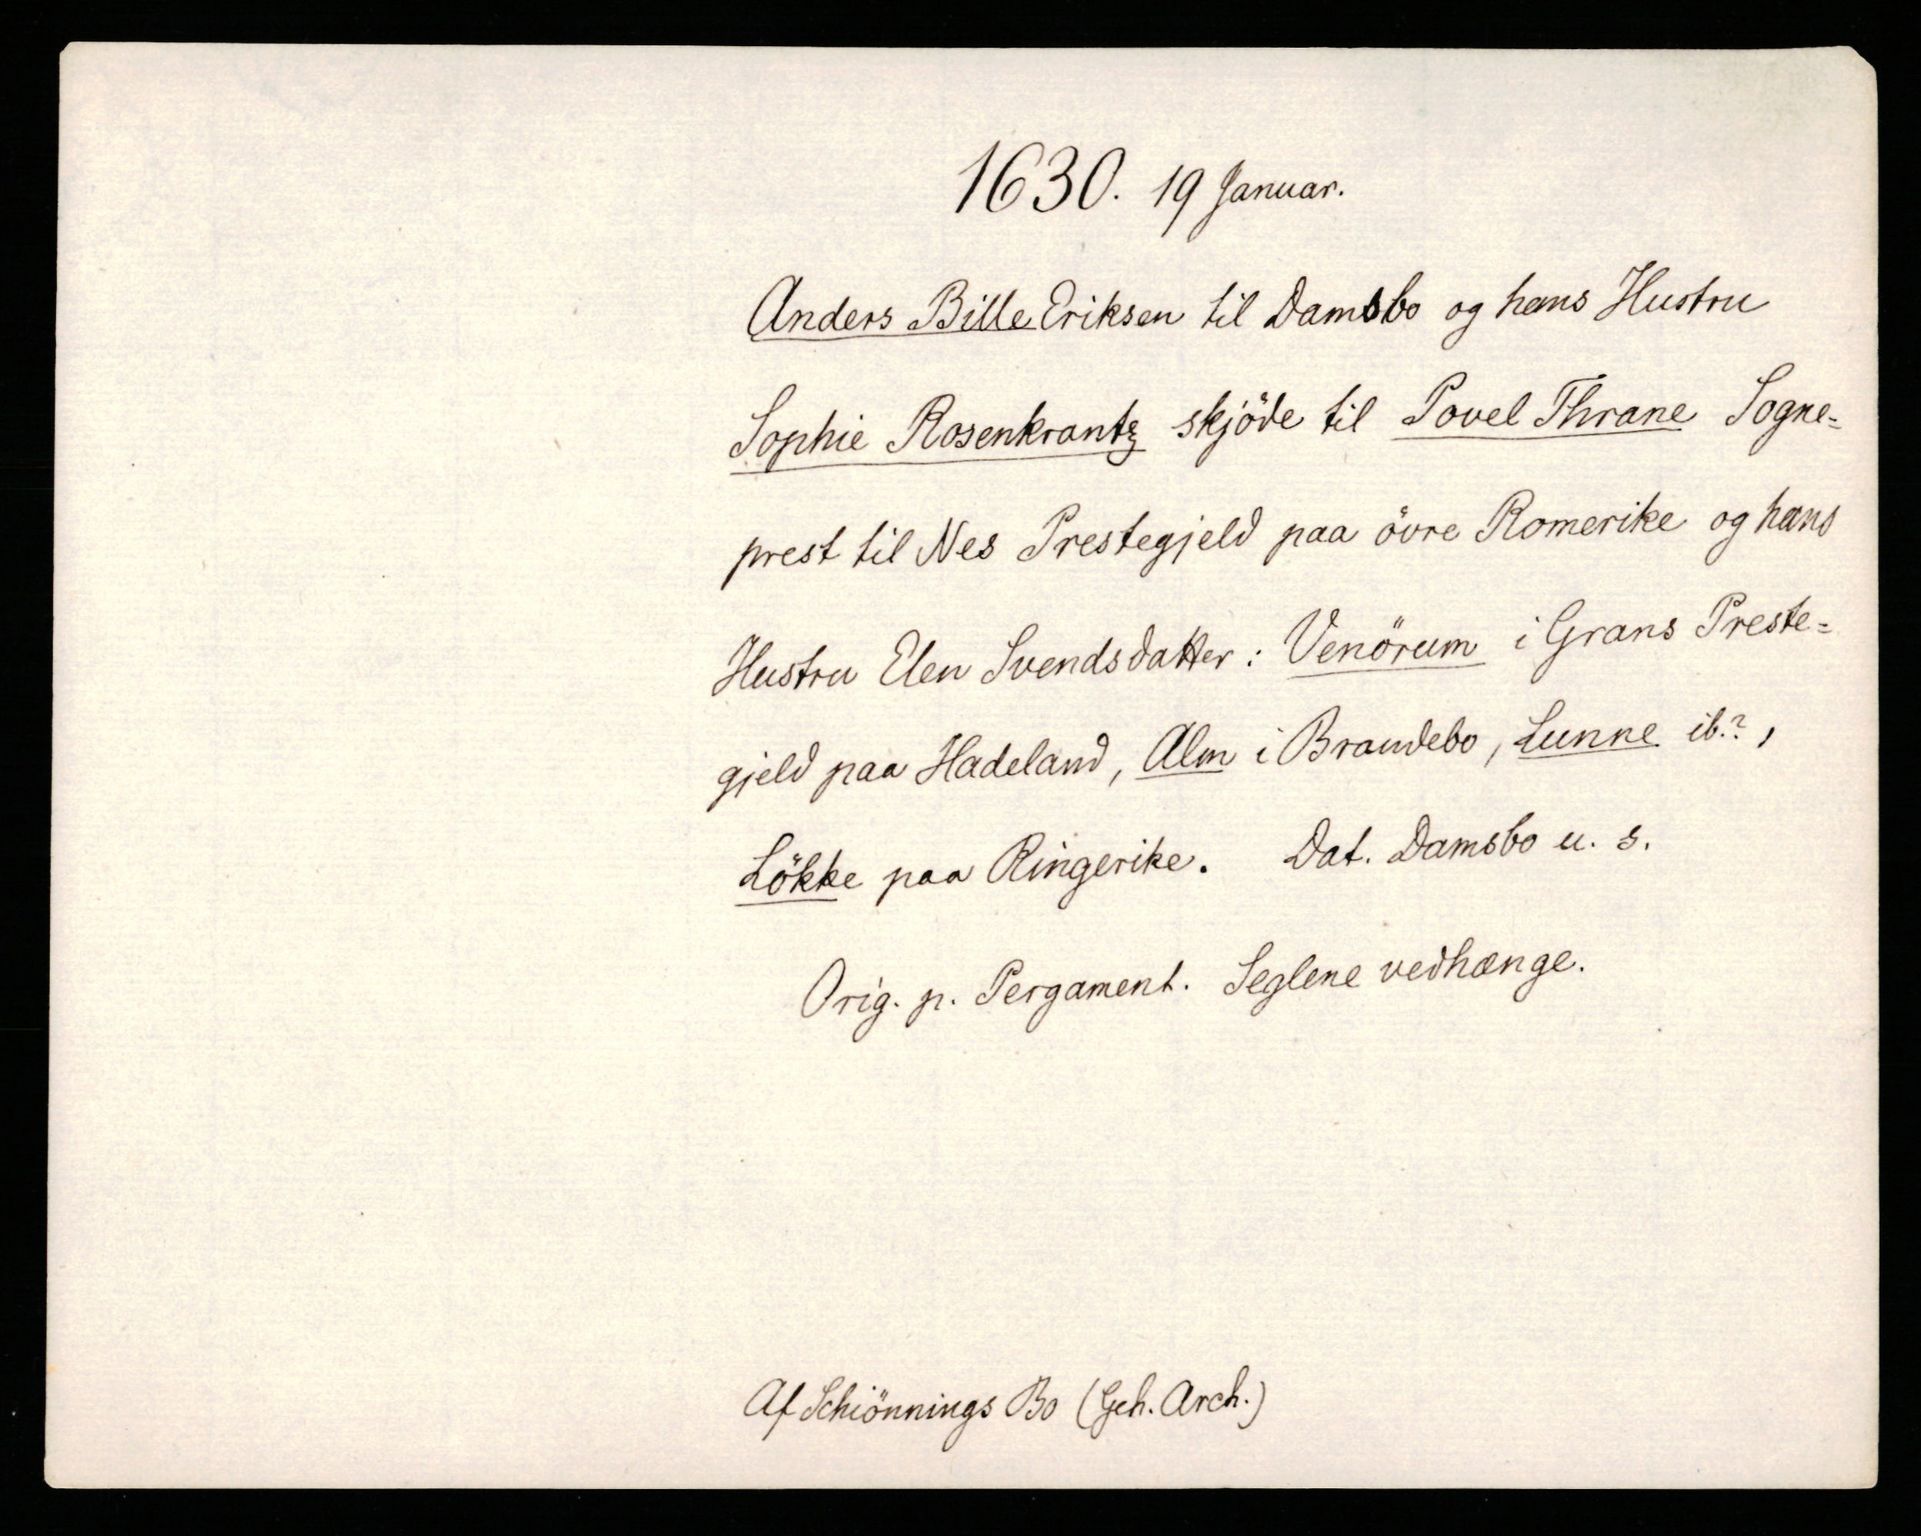 1630. 19 Januar.
Anders Bille Eriksen til Damsbo og hans Hustru
Sophie Rosenkrantz skjöde til Povel Thrane Sogne=
prest til Nes Prestegjeld paa övre Romerike og hans
Hustru Elen Svendsdatter: Venörum i Grans Preste=
gjeld paa Hadeland, Alm i Brandebo, Lunne ib.?,
Lökke paa Ringerike. Dat. Damsbo u. s.
Orig. p. Pergament. Seglene vedhænge.
Af Schiönnings Bo (Geh. Arch.)